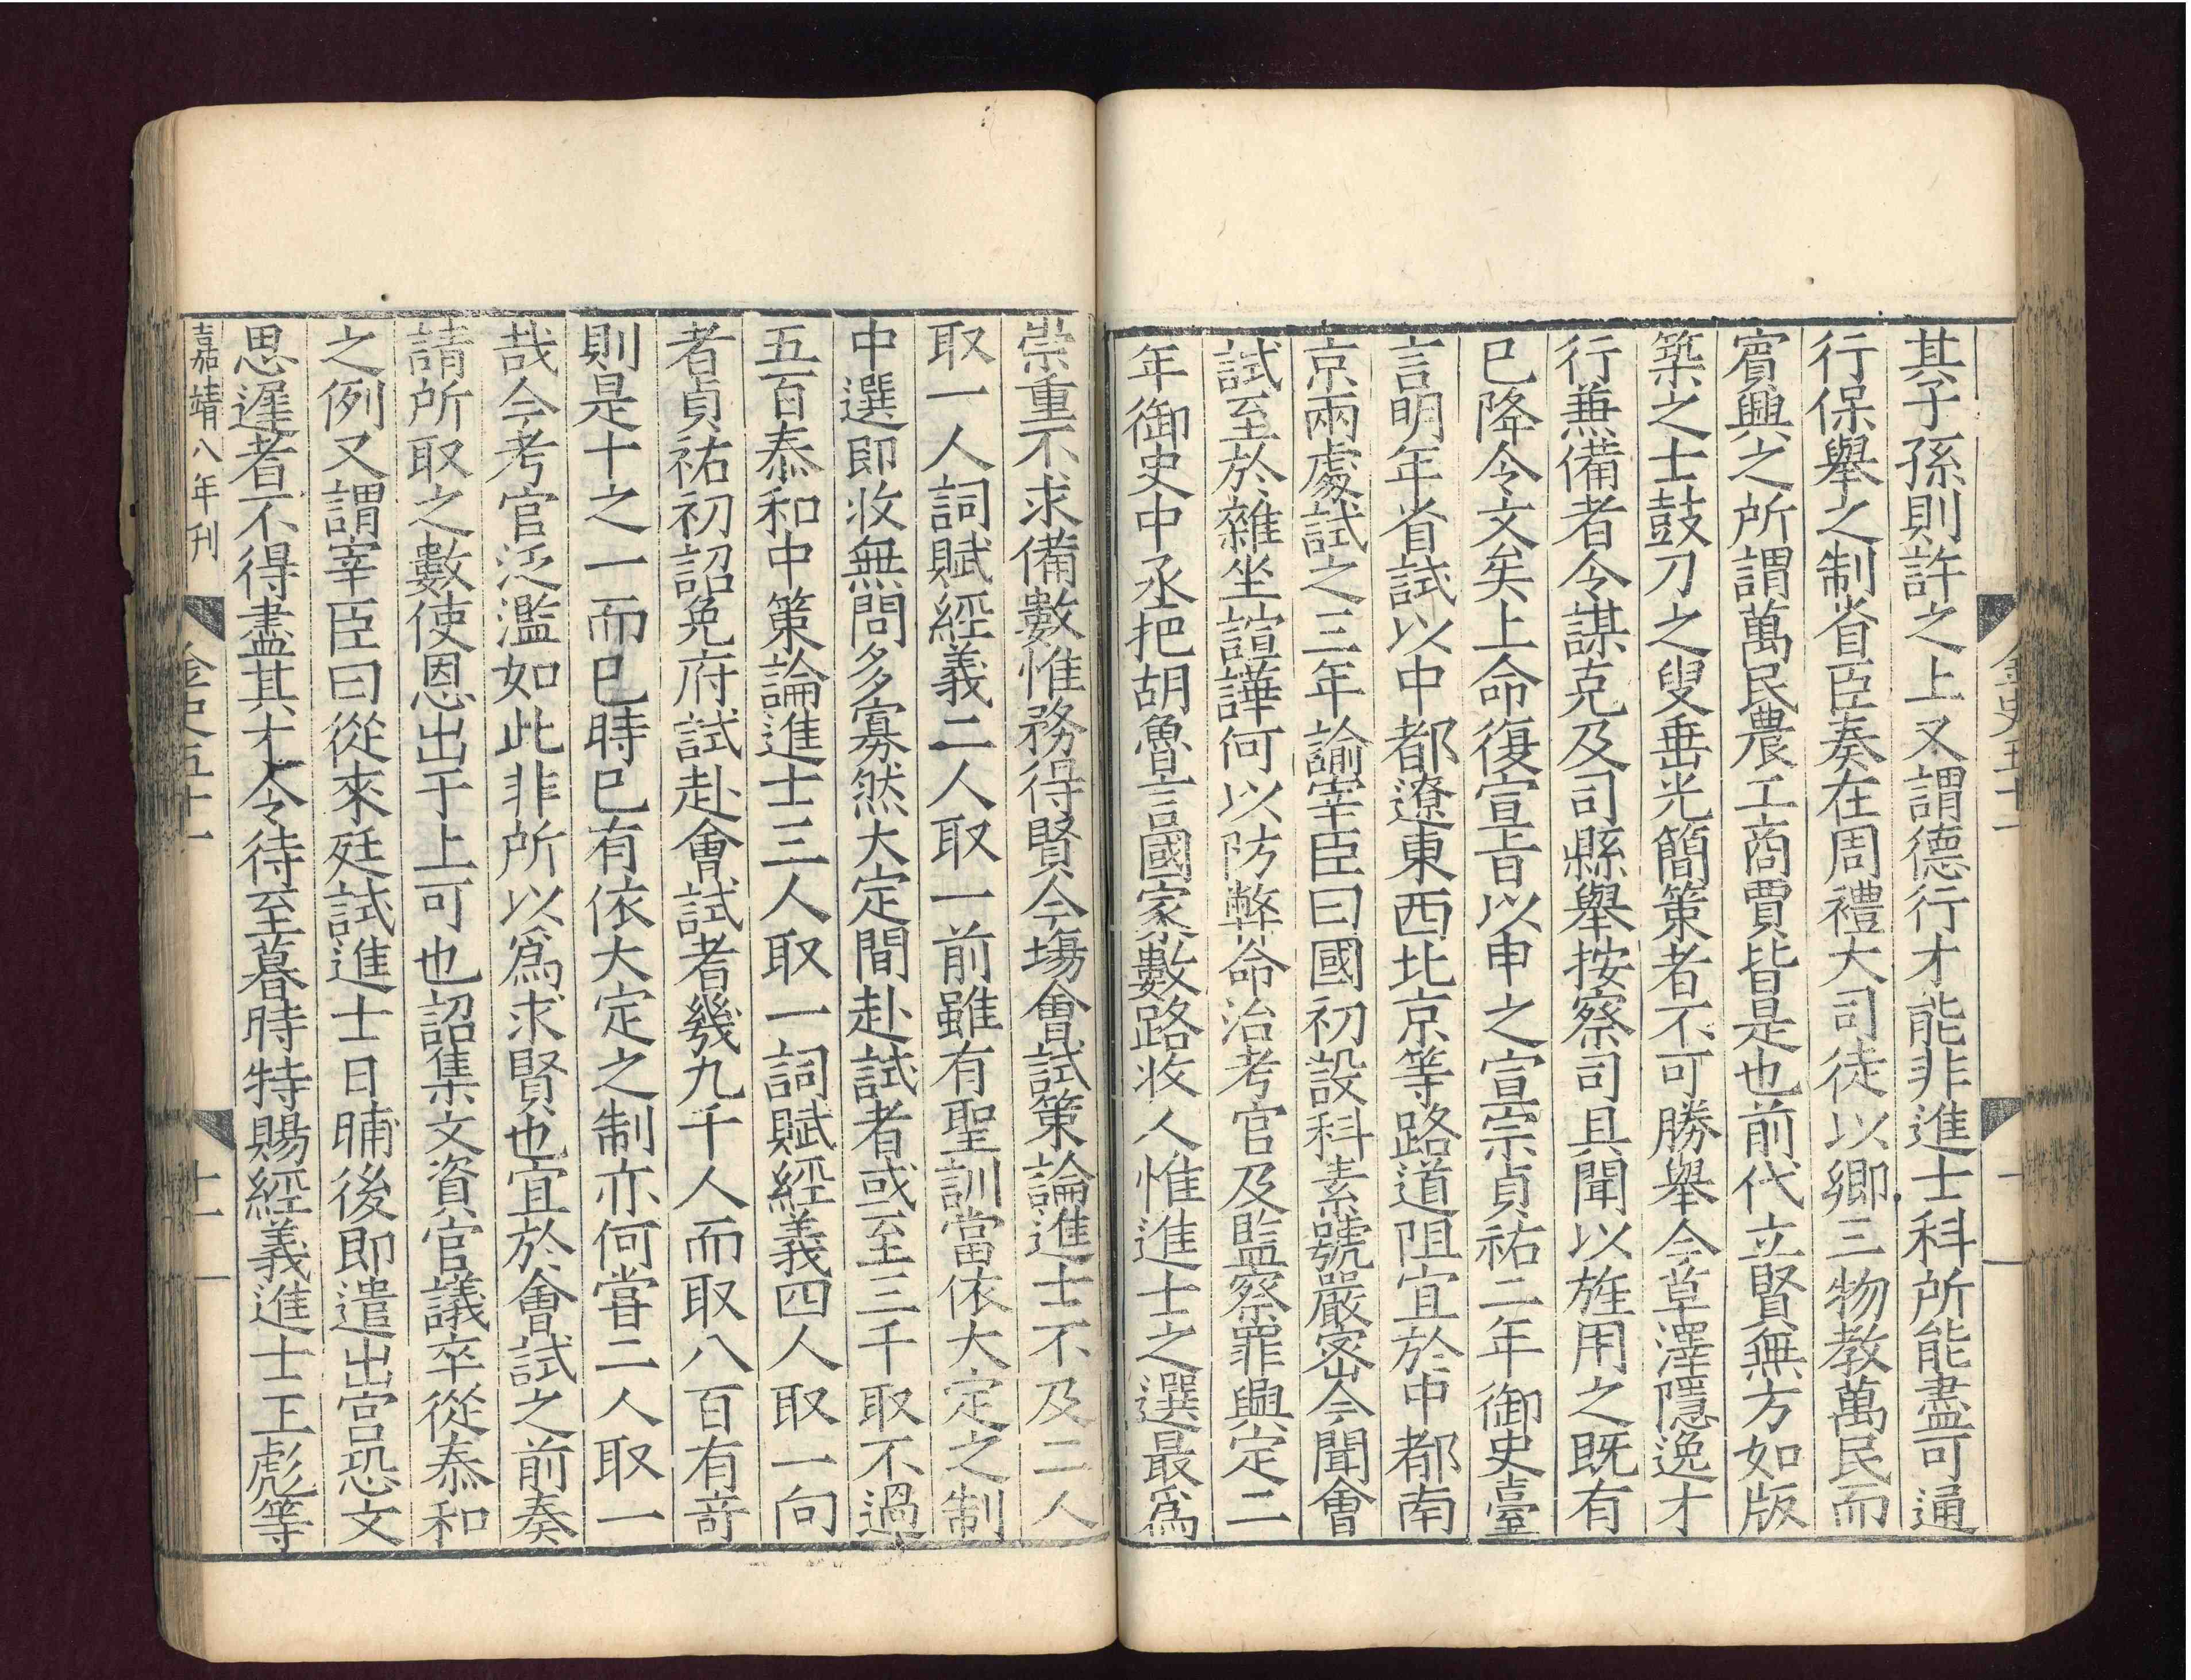 其子孫則許之上又謂德行才能非進士科所能盡可通
行保舉之制省臣奏在周禮大司徒以鄉三物教萬民而
賓興之所謂萬民農工商賈皆是也前代立賢無方如版
築之士鼓刀之叟垂光簡策者不可勝舉今草澤隱逸才
行兼備者令謀克及司縣舉按察司具聞以旌用之既有
已降令文矣上命復宣旨以申之宣宗貞祐二年御史臺
言明年省試以中都遼東西北京等路道阻宜於中都南
京兩處試之三年諭宰臣曰國初設科素號嚴密今聞會
試至於雜坐諠譁何以防弊命治考官及監察罪興定二
年御史中丞把胡魯言國家數路收人惟進士之選最爲
崇重不求備數惟務得賢今塲會試策論進士不及二人
取一人詞賦經義二人取一前雖有聖訓當依大定之制
中選即收無問多寡然大定間赴試者或至三千取不過
五百泰和中策論進士三人取一詞賦經義四人取一向
者貞祐初詔免府試赴會試者幾九千人而取八百有竒
則是十之一而已時已有依大定之制亦何嘗二人取一
哉今考官泛濫如此非所以爲求賢也宜於會試之前奏
請所取之數使恩出于上可也詔集文資官議卒從泰和
之例又謂宰臣曰從來廷試進士日晡後即遣出宮恐文
思遲者不得盡其才令待至暮時特賜經義進士王彪等
嘉靖八年刊
金史五十一
十一